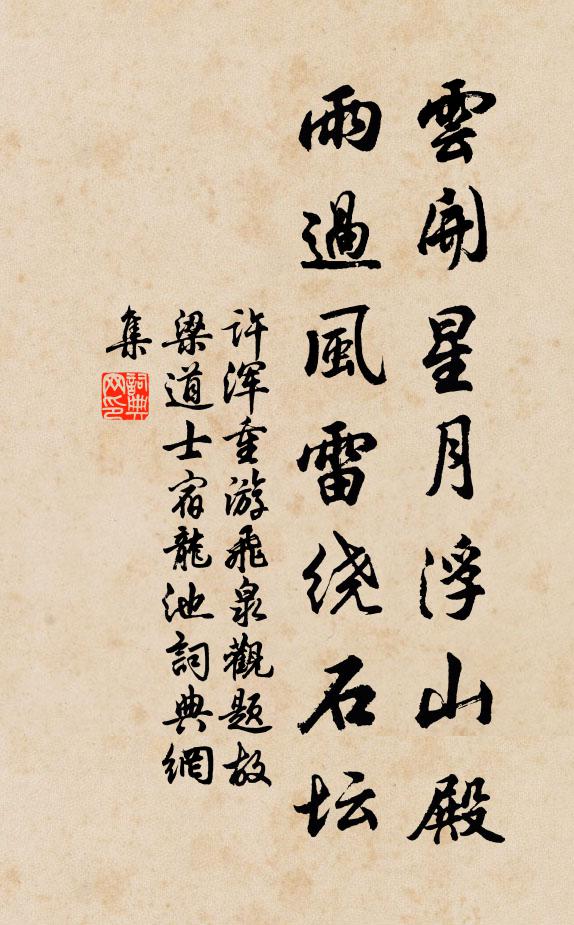 雲開星月浮山殿
雨過風雷绕石坛
许浑重游飛泉觀题故
梁道士宿龍池詞典網
集
詞典
网印